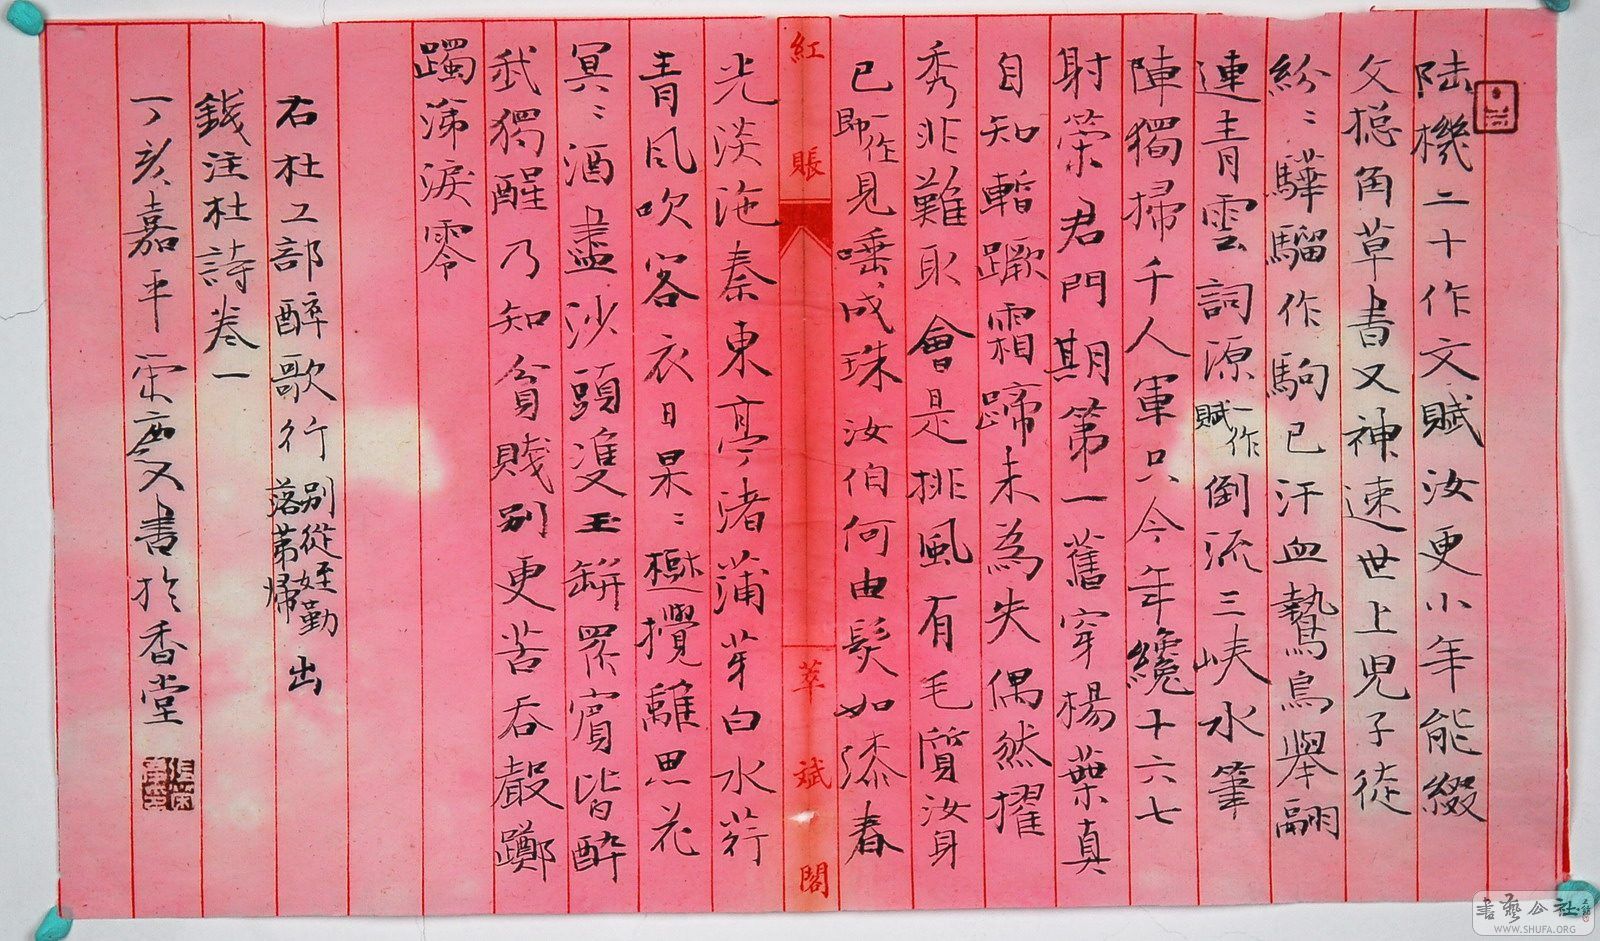 陸機二十作文賦汝更小年能綴
文捴角草書又神速世上兒子徒
紛〻驊騮作駒已汗血鷙鳥舉翮
連青雲詞源一作賦倒流三峽水筆
陣獨掃千人軍只今年纔十六七
射策君門期第一舊穿楊葉真
自知暫蹶霜蹄未為失偶然擢
秀非難取會是排風有毛質汝身
已一作即見唾成珠汝伯何由髮如漆春
光淡沲秦東亭渚蒲芽白水荇
青風吹客衣日杲〻樹攪離思花
冥〻酒盡沙頭雙玉缾眾賓皆醉
我獨醒乃知貧賤別更苦吞聲躑
躅涕淚零
右杜工部醉歌行別從姪勤落第歸出
錢注杜詩卷一
丁亥嘉平慶又書於香堂
紅賬
萃斌閣
書藝公社
WWW.SHUFA.ORG